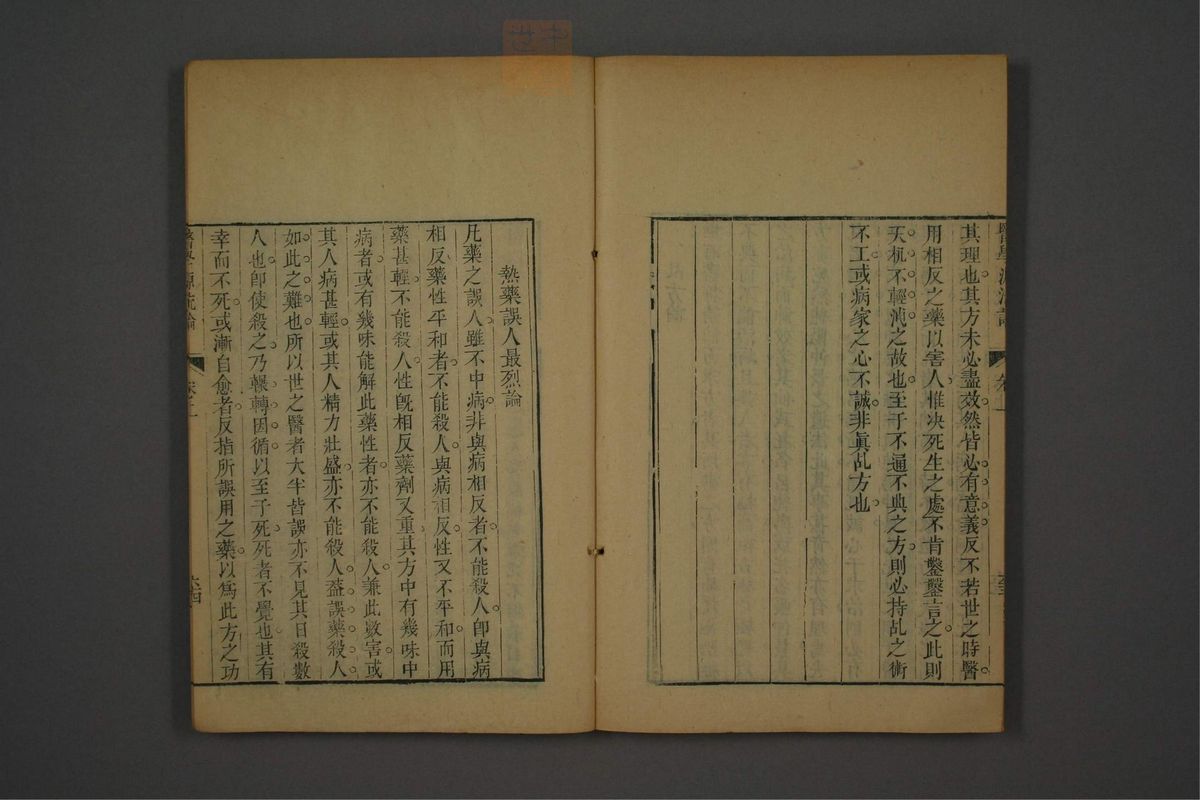 醫學源流論
卷上
其理也其方未必盡效然皆必有意義反不若世之時醫
用相反之藥以害人惟决死生之處不肯鑿鑿言之此則
天機不輕洩之故也至于不通不典之方則必持乩之術
不工或病家之心不誠非眞乩方也
熱藥誤人最烈論
凡藥之誤人雖不中病非與病相反者不能殺人卽與病
相反藥性平和者不能殺人與病相反性又不平和而用
藥甚輕不能殺人性旣相反藥劑又重其方中有幾味中
病者或有幾味能解此藥性者亦不能殺人兼此數害或
其人病甚輕或其人精力壯盛亦不能殺人葢誤藥殺人
如此之難也所以世之醫者大半皆誤亦不見其日殺數
人也卽使殺之乃輾轉因循以至于死死者不覺也其有
幸而不死或漸自愈者反指所誤用之藥以爲此方之功
醫學源流論
卷上
六四